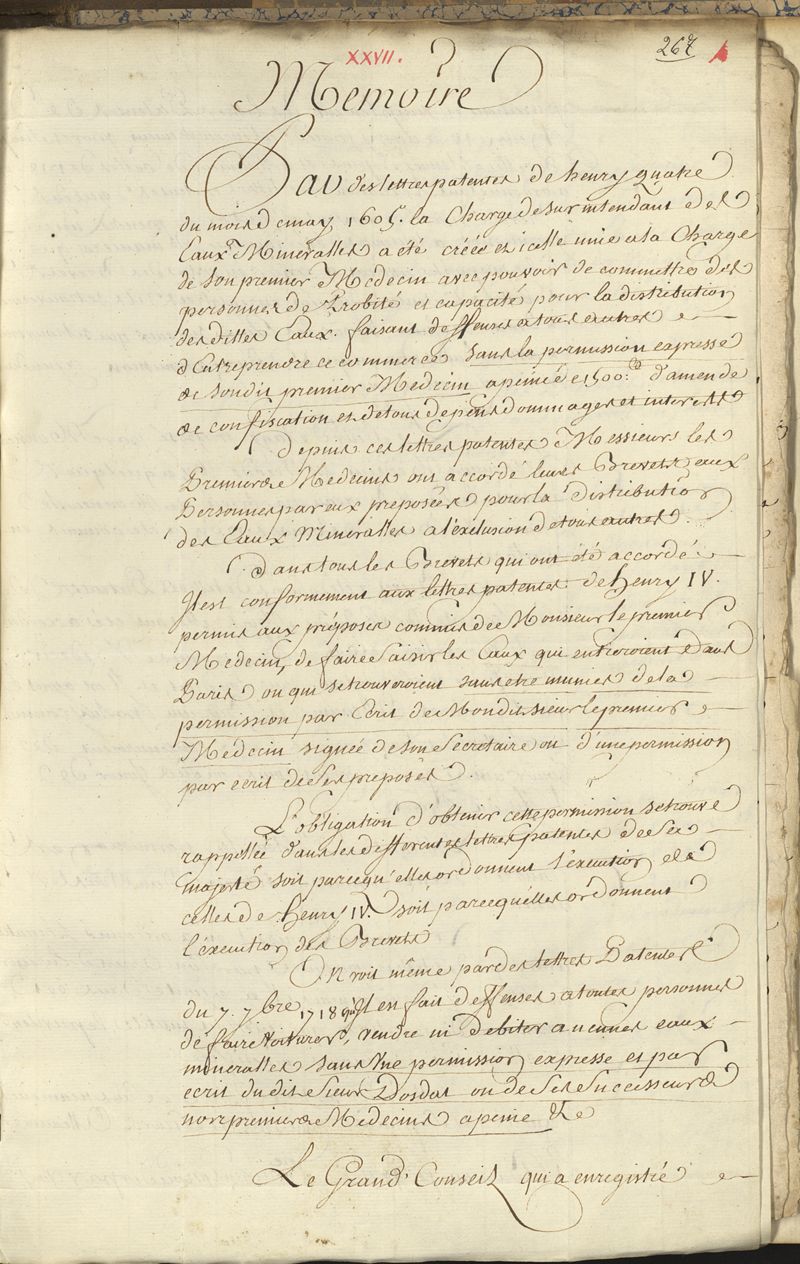 XXVII.
267
Memoire
Par des lettres patentes de henry quatre
du mois de may 1605. la Charge de surintendant des
Eaux Mineralles a été créée et icelle unie a la Charge
de son premier Medecin avec pouvoir de commettre des
personnes de Probité et capacité pour la distribution
des dittes Eaux. faisant deffenses a tous autres
d'Entreprendre ce commerce sans la permission expresse
de son dit premier Medecin a peine de 1500.ᵗᵗ d'amende
de confiscation et de tous depens dommages et interests
Depuis ces lettres patentes Messieurs les
Premiers Medecins ont accordé leurs Brevets aux
Personnes par eux preposées pour la distribution
des Eaux Mineralles a l'exclusion de tous autres.
Dans tous les Brevets qui ont été accordé
Il est conformement aux lettres patentes de henry IV.
permis aux préposes commis de Monsieur le premier
Medecin, de faire Saisir les Eaux qui entreroient dans
Paris ou qui se trouveroient sans etre munies de la
permission par Ecrit de Mondit sieur le premier
Medecin signée de son Secretaire ou d'une permission
par ecrit de Ses preposés.
L'obligation d'obtenir cette permission se trouve
rappellée dans les differentes lettres patentes de Sa
majesté soit parcequ'elles ordonnent l'execution de
celles de henry IV. soit parcequ'elles ordonnent
l'execution des Brevets
On voit même par des lettres Patentes
du 7. 7bre 1718 qu'Il en fait deffenses a toutes personnes
de faire voiturer, vendre ni debiter aucunes eaux
mineralles sans Une permission expresse et par
ecrit du dit Sieur Dosdat ou de Ses Successeurs
nos premiers Medecins a peine &c
Le Grand Conseil qui a enregistré